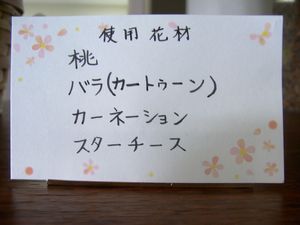 使用花材
桃
バラ(カートゥーン)
カーネーション
スターチース